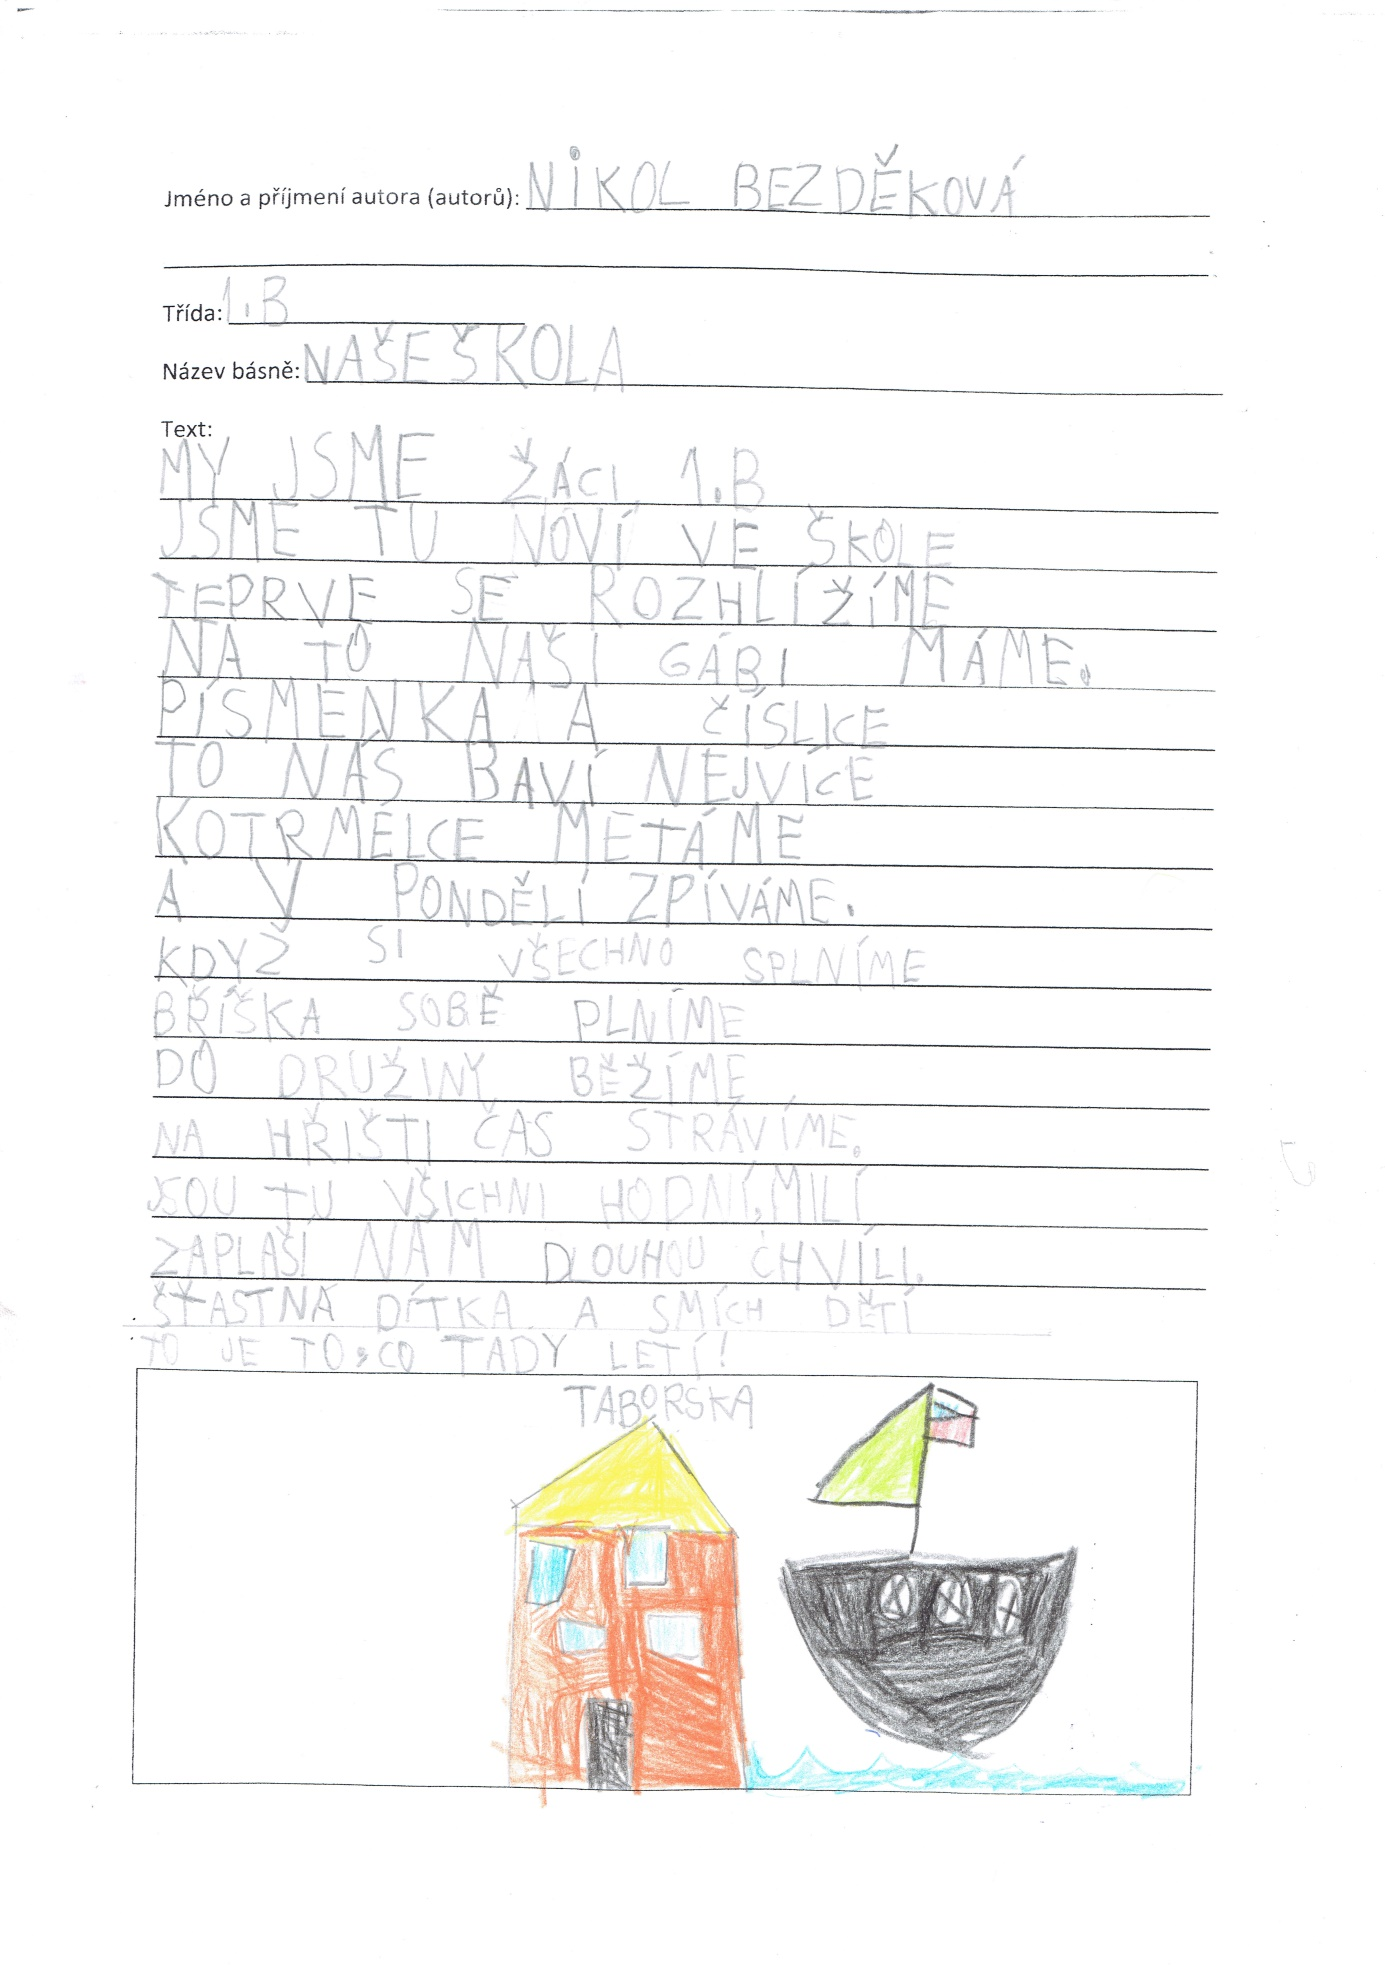 Jméno a příjmení autora (autorů): NIKOL BEZDĚKOVÁ
Třída: 1.B
Název básně: NAŠE ŠKOLA
Text:
MY JSME ŽÁCI 1.B
JSME TU NOVÍ VE ŠKOLE
TEPRVE SE ROZHLÍŽÍME
NA TO NAŠI GÁBI MÁME.
PÍSMENKA A ČÍSLICE
TO NÁS BAVÍ NEJVÍCE
KOTRMELCE METÁME
A V PONDĚLÍ ZPÍVÁME.
KDYŽ SI VŠECHNO SPLNÍME
BŘÍŠKA SOBĚ PLNÍME
DO DRUŽINY BĚŽÍME
NA HŘIŠTI ČAS STRÁVÍME.
JSOU TU VŠICHNI HODNÍ, MILÍ
ZAPLAŠÍ NÁM DLOUHOU CHVÍLI.
ŠŤASTNÁ DÍTKA A SMÍCH DĚTÍ
TO JE TO, CO TADY LETÍ!
TABORSKA